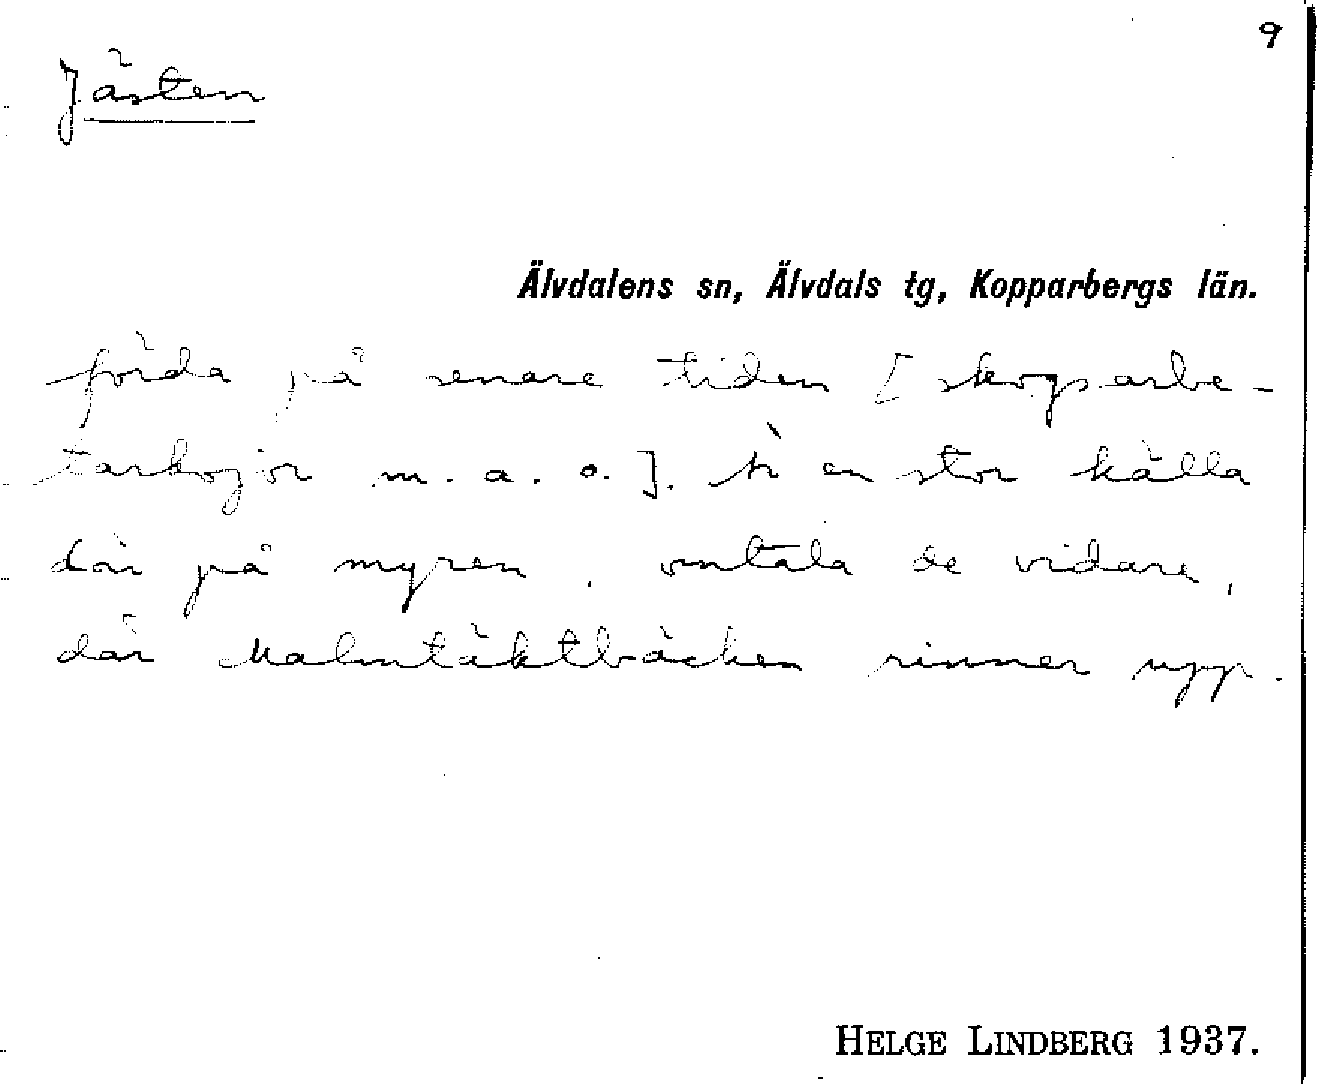 9
Jästen
Älvdalens sn, Älvdals tg, Kopparbergs län.
förda på senare tiden [skogsarbe-
tarkojor m. a. o.]. är en stor källa
där på myren, omtala de vidare,
där Malmtäktbäcken rinner upp.
HELGE LINDBERG 1937.